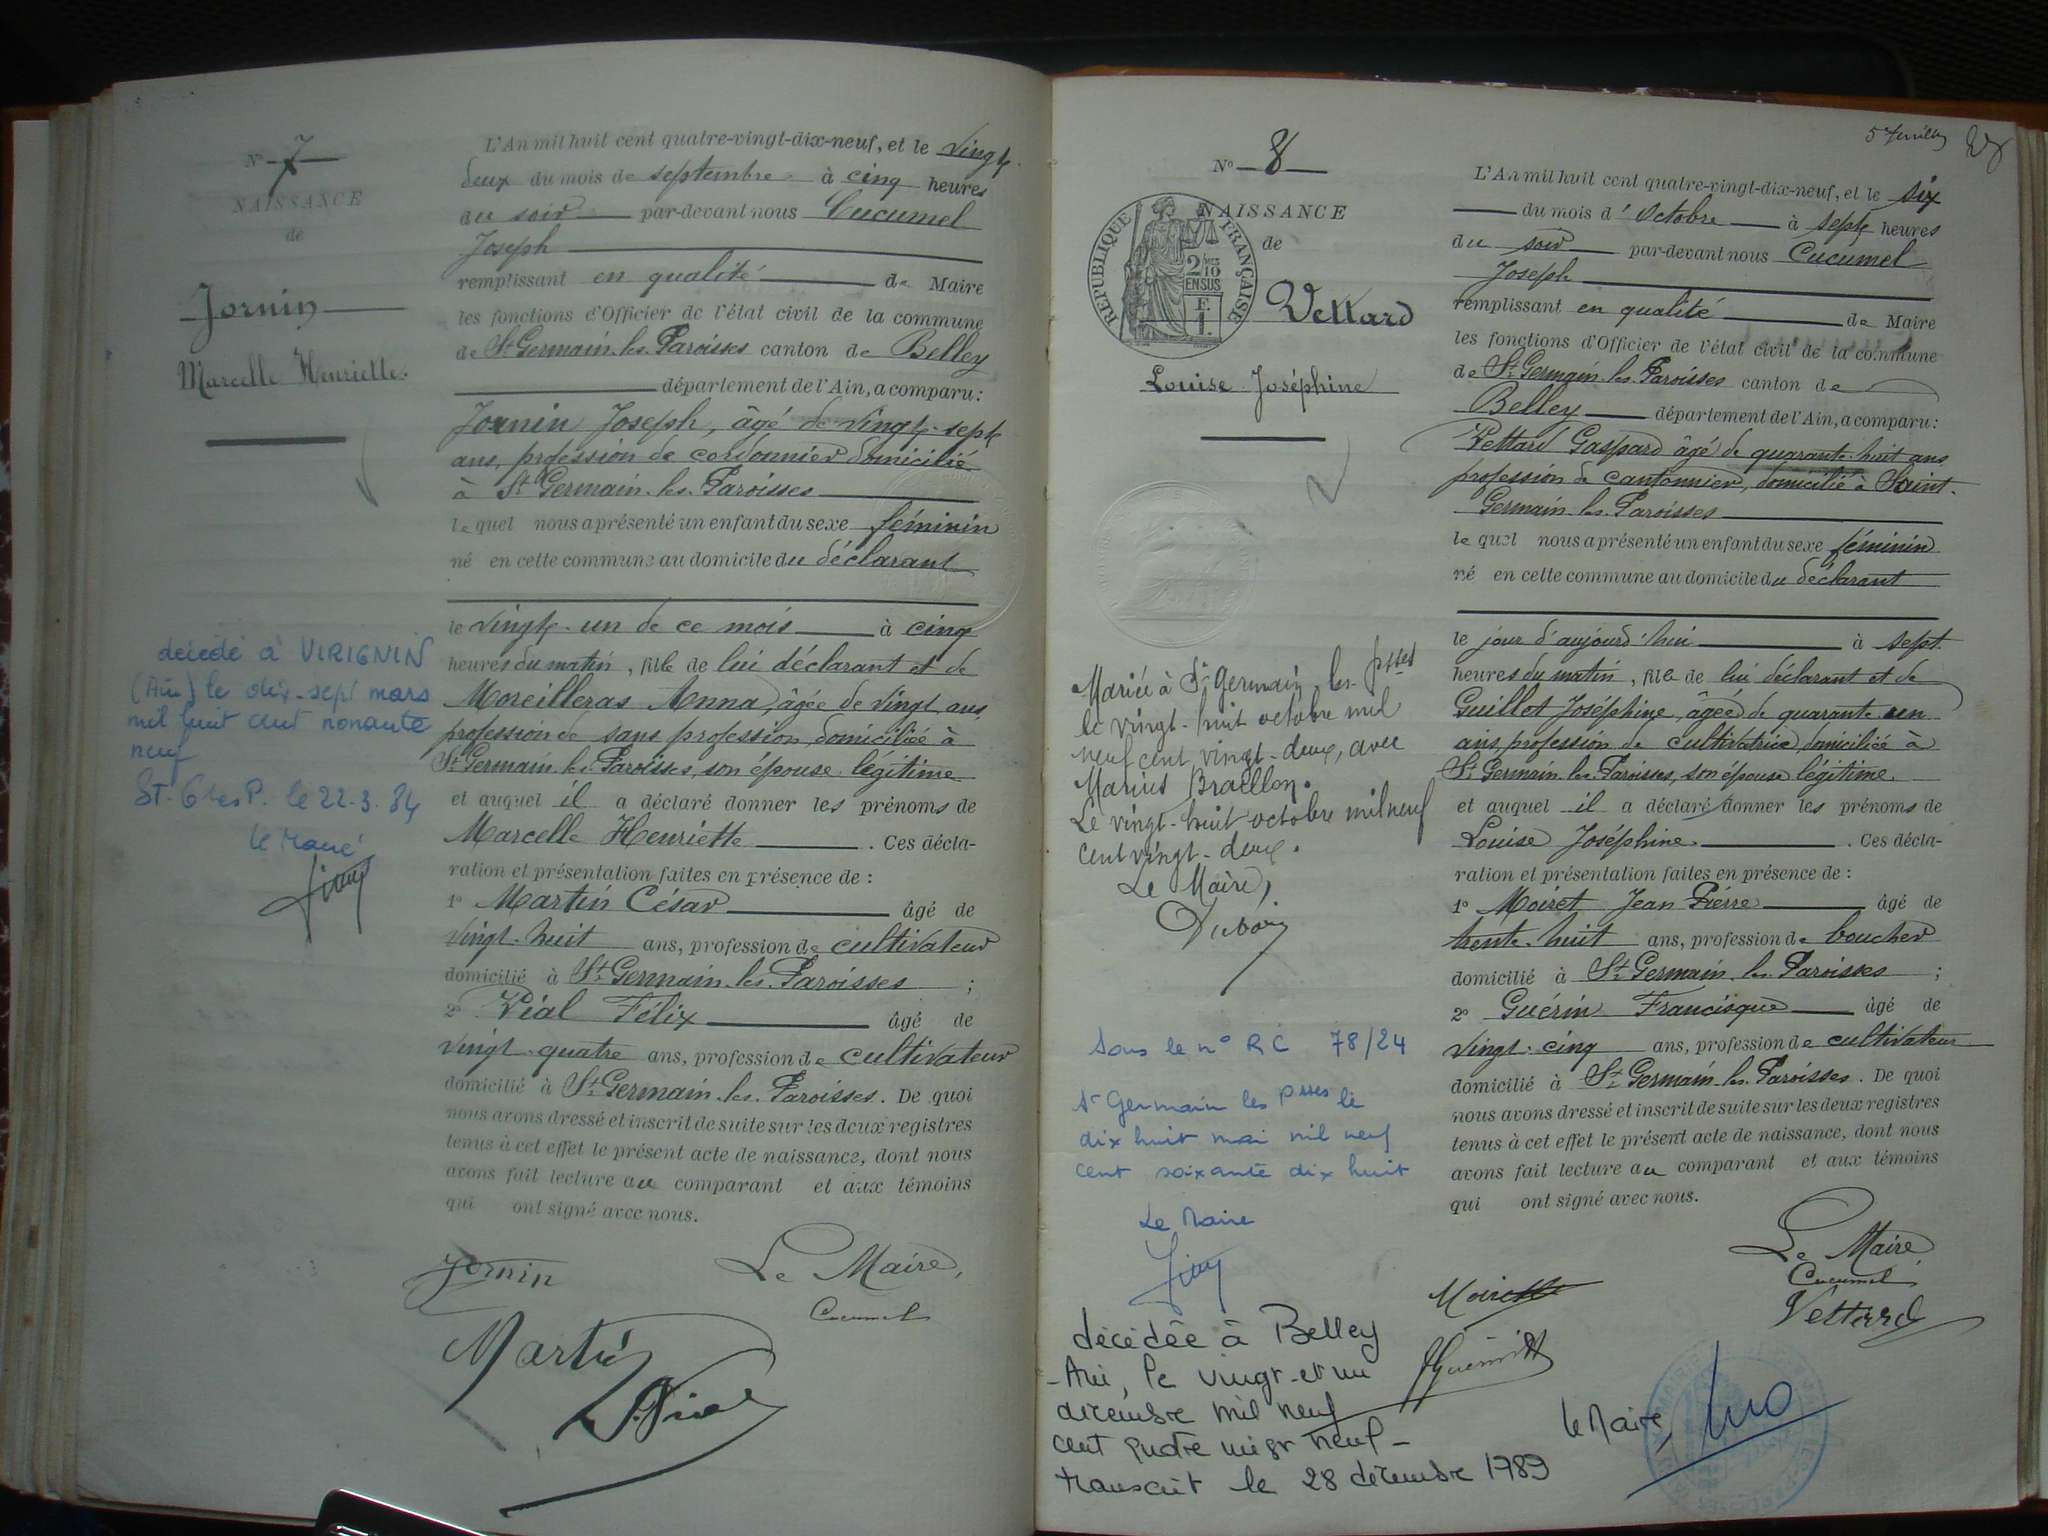 Nº 7
NAISSANCE
de
Jornin
Marcelle Henriette.
décédé à VIRIGNIN
(Ain) le dix-sept mars
mil huit cent nonante
neuf
ST. G les P. le 22.3.84
le Maire
L'An mil huit cent quatre-vingt-dix-neuf, et le vingt
deux du mois de septembre à cinq heures
du soir par-devant nous Cucumel
Joseph
remplissant en qualité de Maire
les fonctions d'Officier de l'état civil de la commune
de St Germain-les-Paroisses canton de Belley
département de l'Ain, a comparu:
Jornin Joseph, âgé de vingt-sept
ans, profession de cordonnier domicilié
à St Germain-les-Paroisses
lequel nous a présenté un enfant du sexe féminin
né en cette commune au domicile du déclarant
le vingt-un de ce mois à cinq
heures du matin, fille de lui déclarant et de
Moreilleras Anna, âgée de vingt ans
profession de sans profession, domiciliée à
St Germain-les-Paroisses, son épouse légitime
et auquel il a déclaré donner les prénoms de
Marcelle Henriette. Ces décla-
ration et présentation faites en présence de :
1º Martin César âgé de
vingt-huit ans, profession de cultivateur
domicilié à St Germain-les-Paroisses ;
2º Vial Félix âgé de
vingt-quatre ans, profession de cultivateur
domicilié à St Germain-les-Paroisses. De quoi
nous avons dressé et inscrit de suite sur les deux registres
tenus à cet effet le présent acte de naissance, dont nous
avons fait lecture au comparant et aux témoins
qui ont signé avec nous.
Jornin
Le Maire,
Cucumel
Martin
Vial
Nº 8
NAISSANCE
de
RÉPUBLIQUE FRANÇAISE
2/10
EN SUS
F.
1.
Vettard
Louise Joséphine
Mariée à St Germain les Psses
le vingt-huit octobre mil
neuf cent vingt-deux, avec
Marius
Le vingt-huit octobre mil neuf
cent vingt-deux.
Le Maire,
Dubois
Sous le nº RC 78/24
St Germain les Psses le
dix huit mai mil neuf
cent soixante dix huit
Le Maire
décédée à Belley
-Ain, le vingt-et-un
décembre mil neuf
cent quatre vingt neuf-
transcrit le 28 décembre 1989
L'An mil huit cent quatre-vingt-dix-neuf, et le six
du mois d'Octobre à sept heures
du soir par-devant nous Cucumel
Joseph
remplissant en qualité de Maire
les fonctions d'Officier de l'état civil de la commune
de St Germain-les-Paroisses canton de
Belley département de l'Ain, a comparu:
Vettard Gaspard âgé de quarante-huit ans
profession de cantonnier, domicilié à Saint-
Germain-les-Paroisses
lequel nous a présenté un enfant du sexe féminin
né en cette commune au domicile du déclarant
le jour d'aujourd'hui à sept
heures du matin, fille de lui déclarant et de
Guillot Joséphine, âgée de quarante un
ans, profession de cultivatrice domiciliée à
St Germain-les-Paroisses, son épouse légitime.
et auquel il a déclaré donner les prénoms de
Louise Joséphine. Ces décla-
ration et présentation faites en présence de :
1º Moiret Jean Pierre âgé de
trente-huit ans, profession de boucher
domicilié à St Germain-les-Paroisses ;
2º Guérin Francisque âgé de
vingt-cinq ans, profession de cultivateur
domicilié à St Germain-les-Paroisses. De quoi
nous avons dressé et inscrit de suite sur les deux registres
tenus à cet effet le présent acte de naissance, dont nous
avons fait lecture au comparant et aux témoins
qui ont signé avec nous.
Le Maire
Cucumel
Vettard
le Maire,